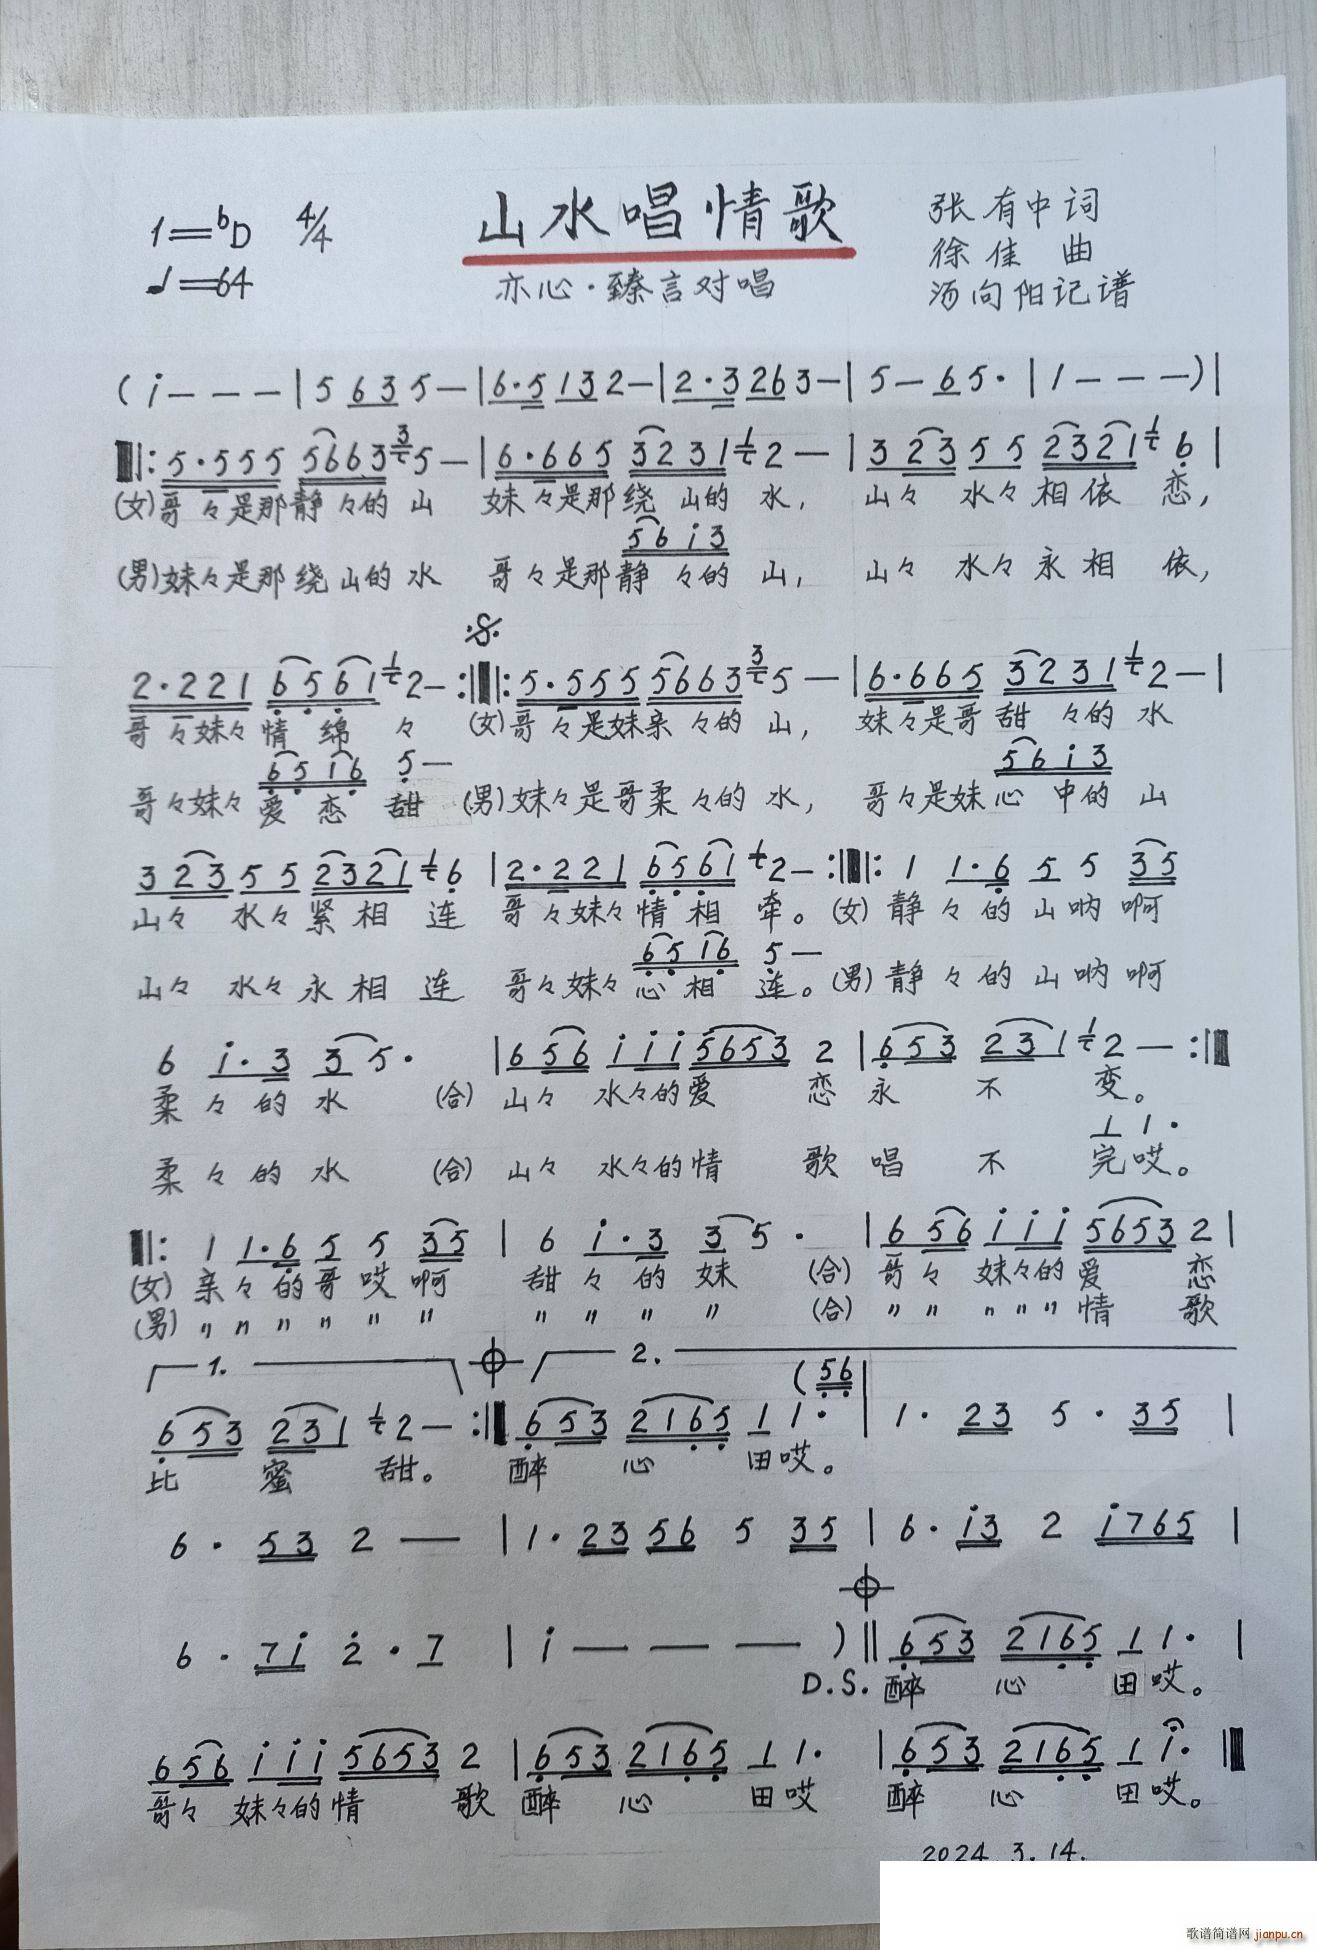 1=bD 4/4 山水唱情歌 张有中词
♩=64 亦心·臻言对唱 徐佳 曲
汤向阳记谱
(i - - - | 5 6 3 5 - | 6·5 1 3 2 - | 2·3 2 6 3 - | 5 - 6 5· | 1 - - - ) |
‖: 5·5 5 5 5 6 6 3 3 5 - | 6·6 6 5 3 2 3 1 1 2 - | 3 2 3 5 5 2 3 2 1 1 6 |
(女)哥々是那静々的山 妹々是那绕山的水, 山々 水々相依 恋,
5 6 i 3
(男)妹々是那绕山的水 哥々是那静々的山, 山々 水々永相 依,
2·2 2 1 6 5 6 1 1 2 - :‖: 5·5 5 5 5 6 6 3 3 5 - | 6·6 6 5 3 2 3 1 1 2 - |
哥々妹々情绵々 (女)哥々是妹亲々的山, 妹々是哥甜々的水
6 5 1 6 5 - 5 6 i 3
哥々妹々爱恋甜 (男)妹々是哥柔々的水, 哥々是妹心中的山
3 2 3 5 5 2 3 2 1 1 6 | 2·2 2 1 6 5 6 1 1 2 - :‖: 1 1·6 5 5 3 5
山々 水々紧相 连 哥々妹々情相 牵。(女)静々的山呐啊
6 5 1 6 5 -
山々 水々永相连 哥々妹々心相 连。(男)静々的山呐啊
6 i·3 3 5· | 6 5 6 i i i 5 6 5 3 2 | 6 5 3 2 3 1 1 2 - :‖
柔々的水 (合) 山々 水々的爱 恋 永 不 变。
1 1·
柔々的水 (合) 山々 水々的情 歌 唱 不 完哎。
‖: 1 1·6 5 5 3 5 | 6 i·3 3 5 · | 6 5 6 i i i 5 6 5 3 2 |
(女) 亲々的哥哎啊 甜々的妹 (合) 哥々 妹々的爱 恋
(男) 〃 〃 〃 〃 〃 〃 〃 〃 〃 〃 (合) 〃 〃 〃 〃 〃 情 歌
1. 2.
(5 6
6 5 3 2 3 1 1 2 - :‖ 6 5 3 2 1 6 5 1 1· | 1· 2 3 5· 3 5 |
比 蜜 甜。 醉 心 田哎。
6· 5 3 2 — | 1·2 3 5 6 5 3 5 | 6·i 3 2 i 7 6 5 |
6· 7 i 2·7 | i — — — )‖ 6 5 3 2 1 6 5 1 1· |
D.S. 醉 心 田哎。
6 5 6 i i i 5 6 5 3 2 | 6 5 3 2 1 6 5 1 1· | 6 5 3 2 1 6 5 1 i· ‖
哥々 妹々的情 歌 醉 心 田哎 醉 心 田哎。
2024.3.14.
歌谱简谱网 jianpu.cn